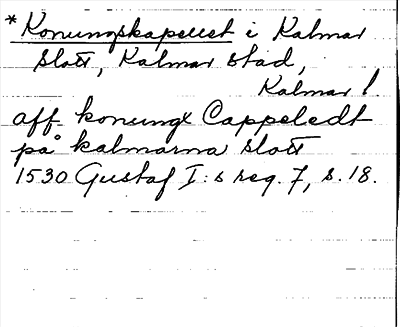 *Konungskapellet i Kalmar
Slott, Kalmar stad,
Kalmar l
aff konungx Cappeledt
på kalmarna slott
1530 Gustaf I:s reg. 7, s. 18.